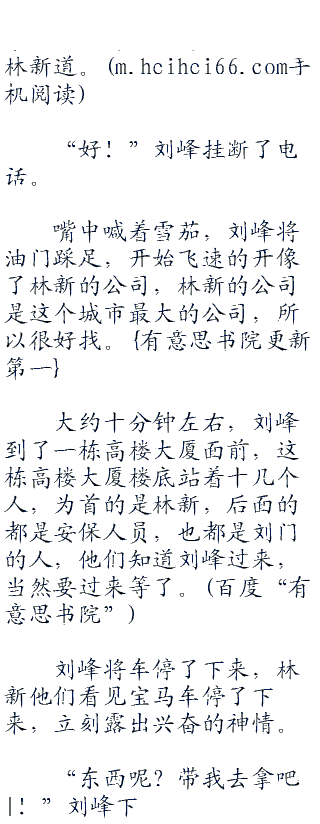 林新道。(m.hcihci66.com手
机阅读)
“好！”刘峰挂断了电
话。
嘴中喊着雪茄，刘峰将
油门踩足，开始飞速的开像
了林新的公司，林新的公司
是这个城市最大的公司，所
以很好找。{有意思书院更新
第一}
大约十分钟左右，刘峰
到了一栋高楼大厦面前，这
栋高楼大厦楼底站着十几个
人，为首的是林新，后面的
都是安保人员，也都是刘门
的人，他们知道刘峰过来，
当然要过来等了。(百度“有
意思书院”)
刘峰将车停了下来，林
新他们看见宝马车停了下
来，立刻露出兴奋的神情。
“东西呢？带我去拿吧
|！”刘峰下